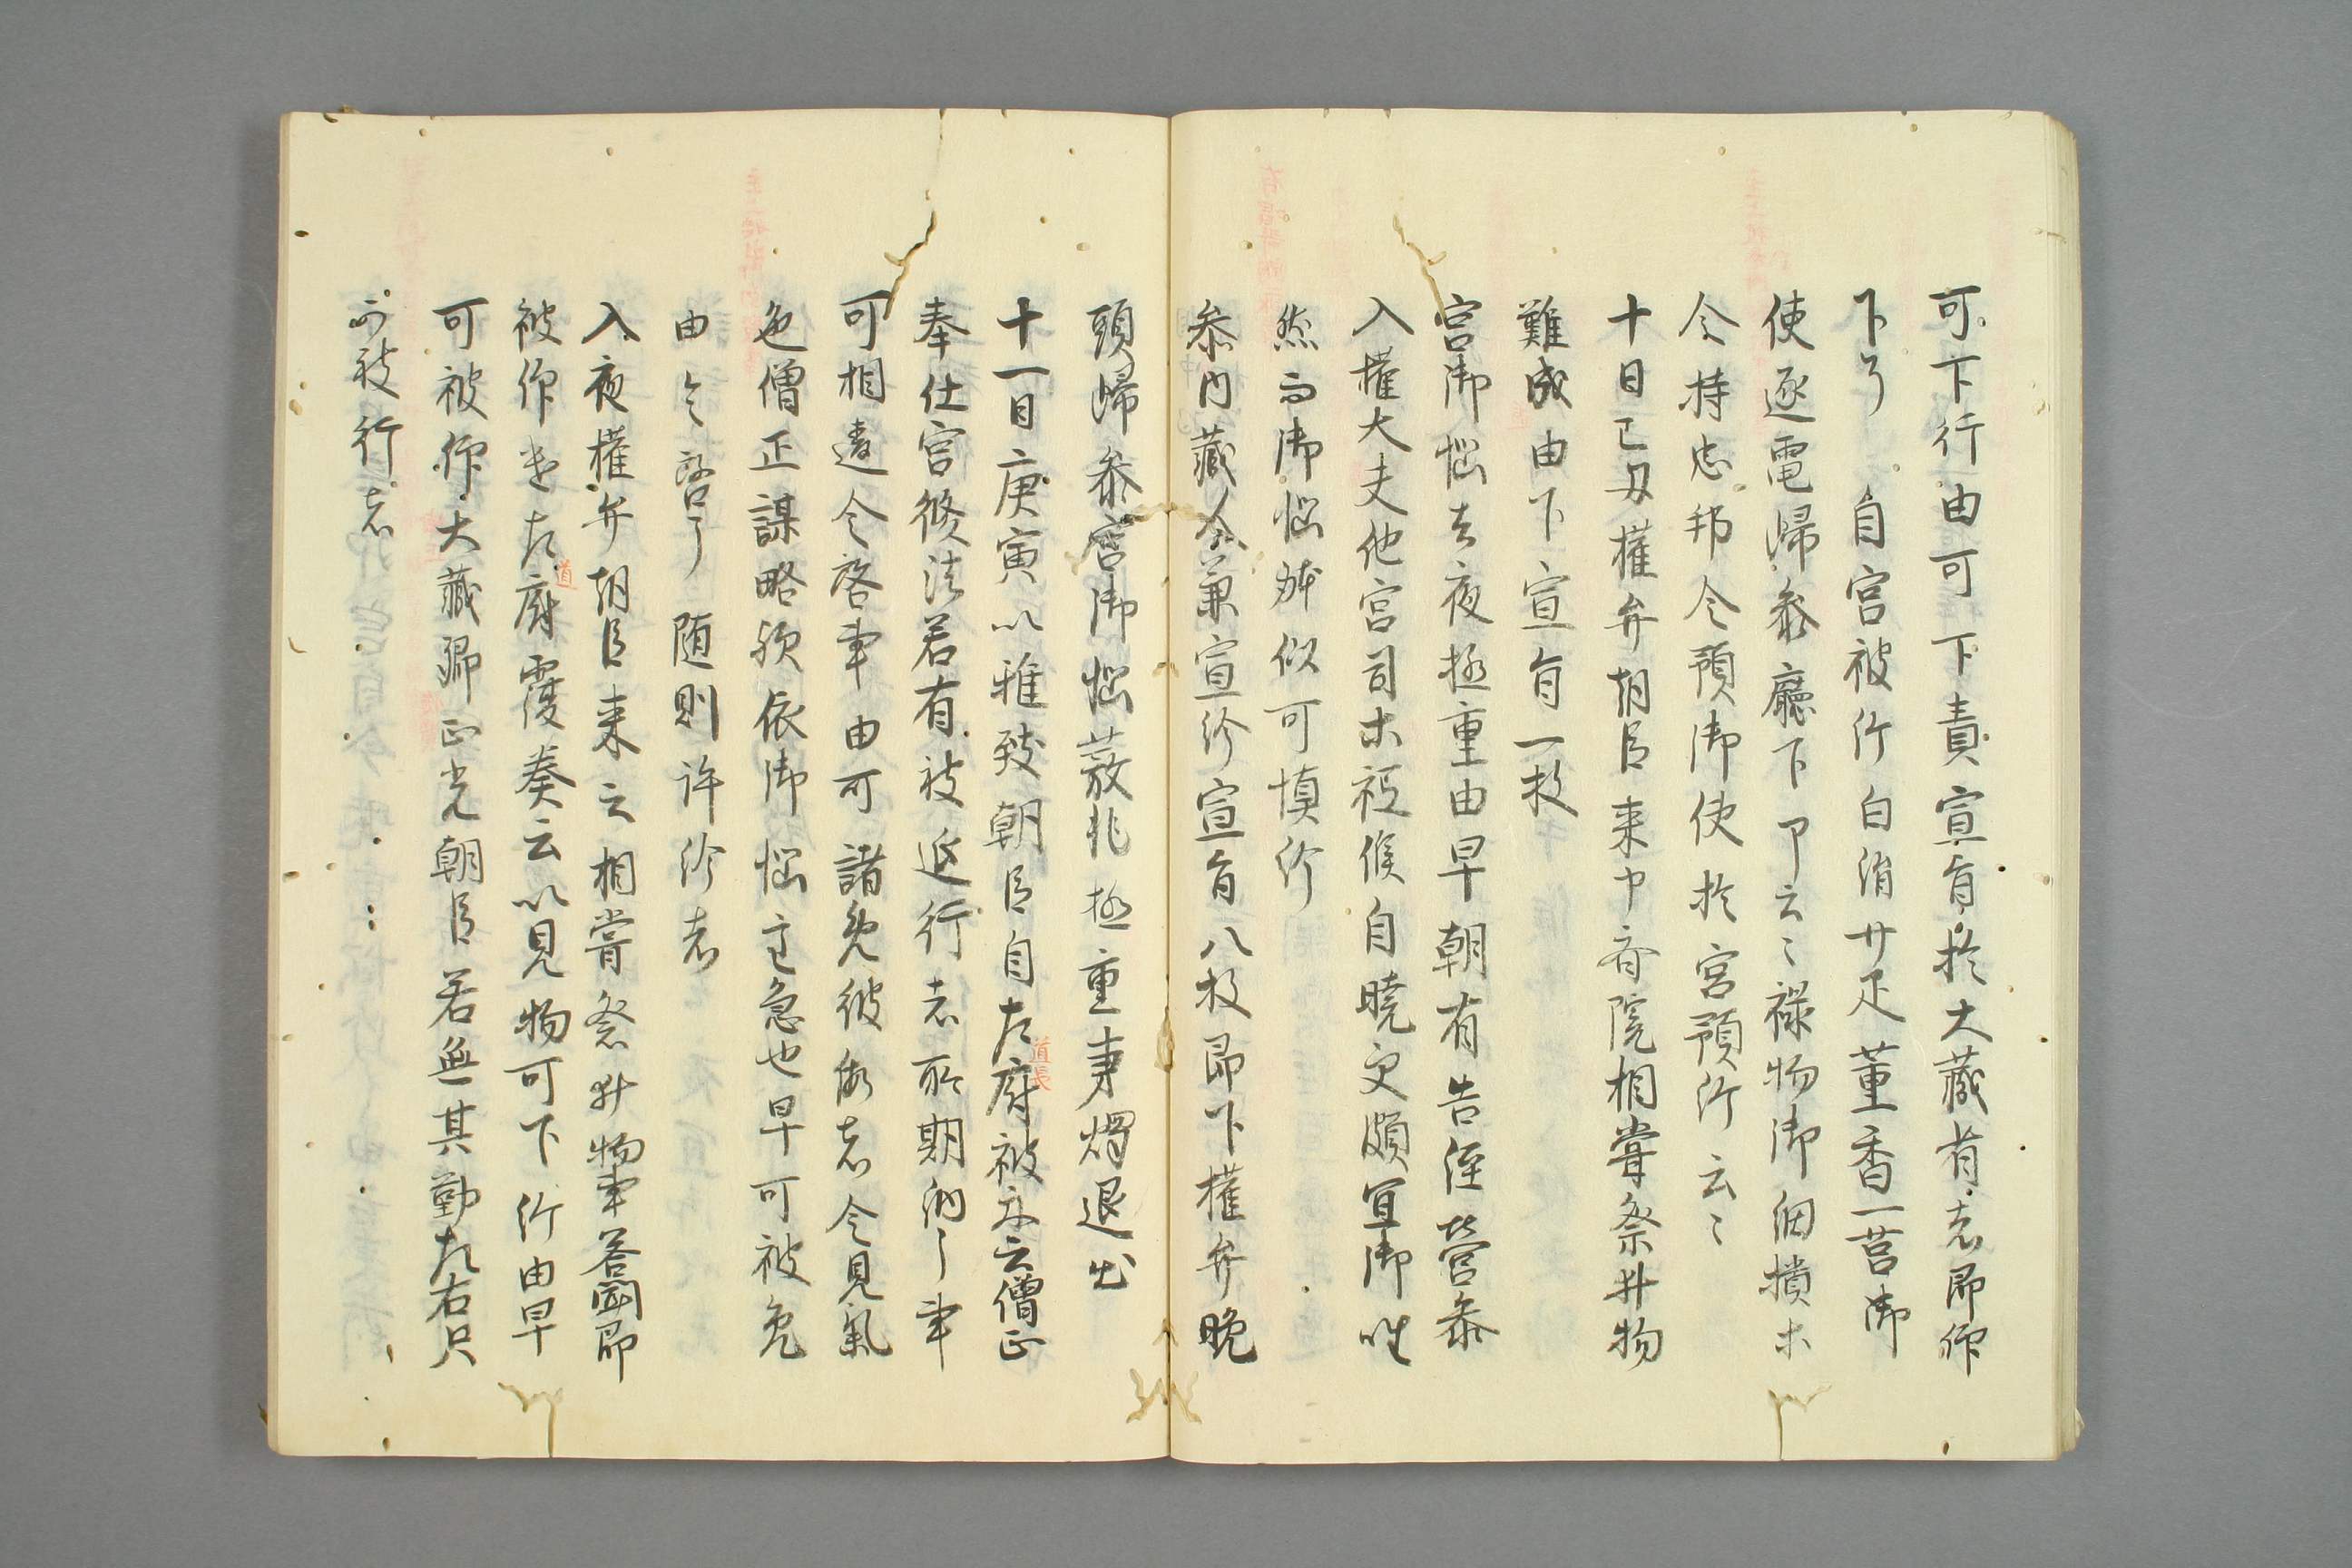 可下行由可下責宣旨於大蔵省者即仰
下了　自宮被行白絹廿疋薫香一筥御
使逐電帰参廳下了云々禄物御細櫃木
令持忠邦令預御使於宮預給云々
十日己丑権弁朝臣来申斎院相嘗祭料物
難成由下宣旨一枚
宮御悩去夜極重由早朝有告侄営参
入権大夫他宮司木祗候自暁更頗宜御唑
然而御悩躰似可慎給
参内蔵人兼宣給宣旨八枚即下権弁晩
頭帰参宮御悩敢非極重秉燭退出
十一日庚寅以雅致朝臣自左府被示云僧正
道長
奉仕宮修法若有被延行者所期約了事
可相違令啓事由可諸免彼僧者令見氣
色僧正謀略歟依御悩危急也早可被免
由令啓了　随則許給者
入夜権弁朝臣来云相嘗祭料物事召国即
被仰遣左府覆奏云以見物可下給由早
道
可被仰大蔵卿正光朝臣若無其勤左右只
可被行者